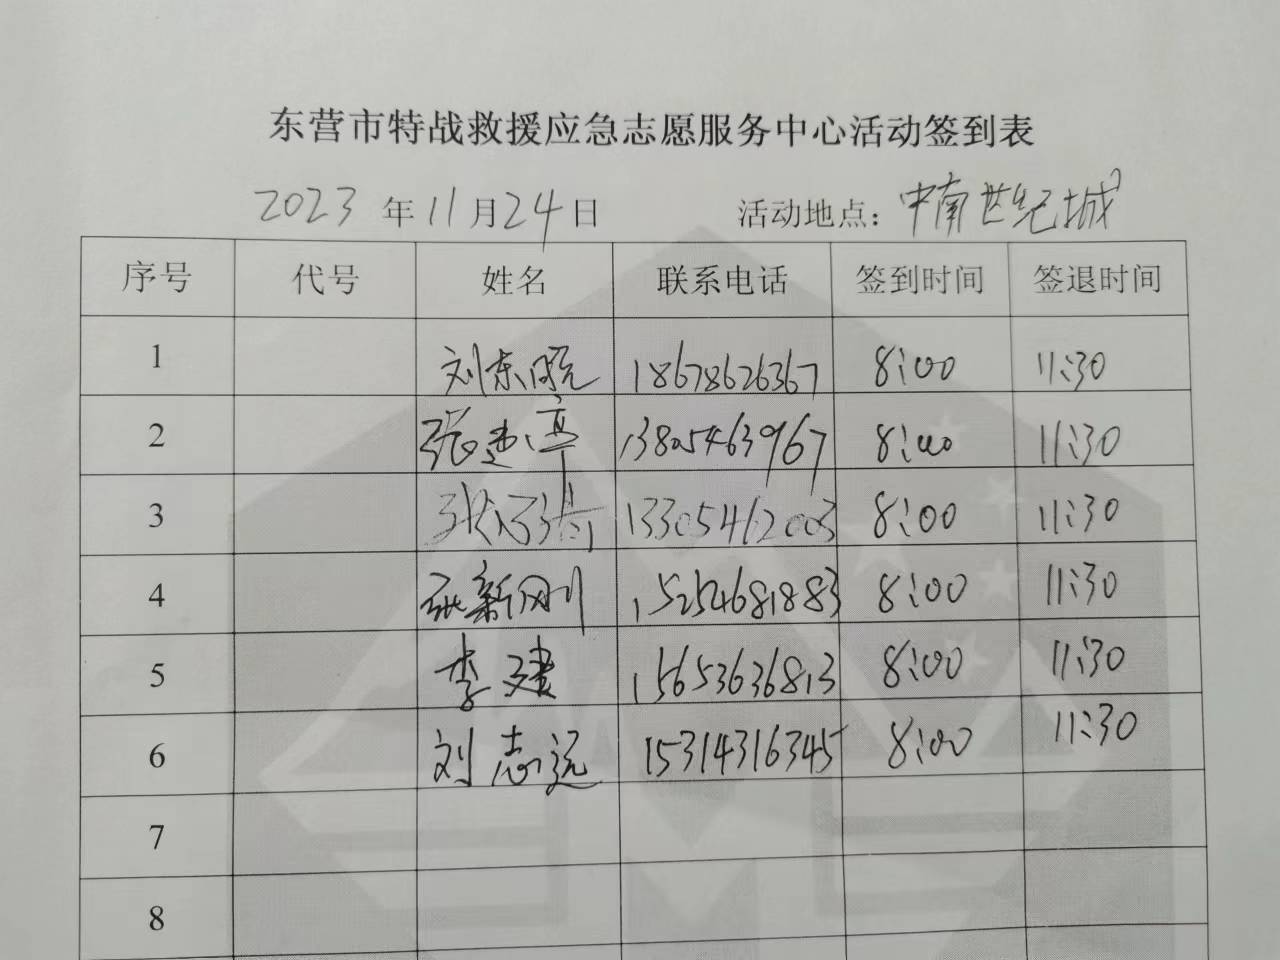 东营市特战救援应急志愿服务中心活动签到表
2023 年 11 月 24 日 活动地点: 中南世纪城
序号 代号 姓名 联系电话 签到时间 签退时间
1 刘东晓 18678626367 8:00 11:30
2 张建亭 13805463967 8:00 11:30
3 13305462003 8:00 11:30
4 张新刚 15254681883 8:00 11:30
5 李建 15653636813 8:00 11:30
6 刘志远 15314316345 8:00 11:30
7
8